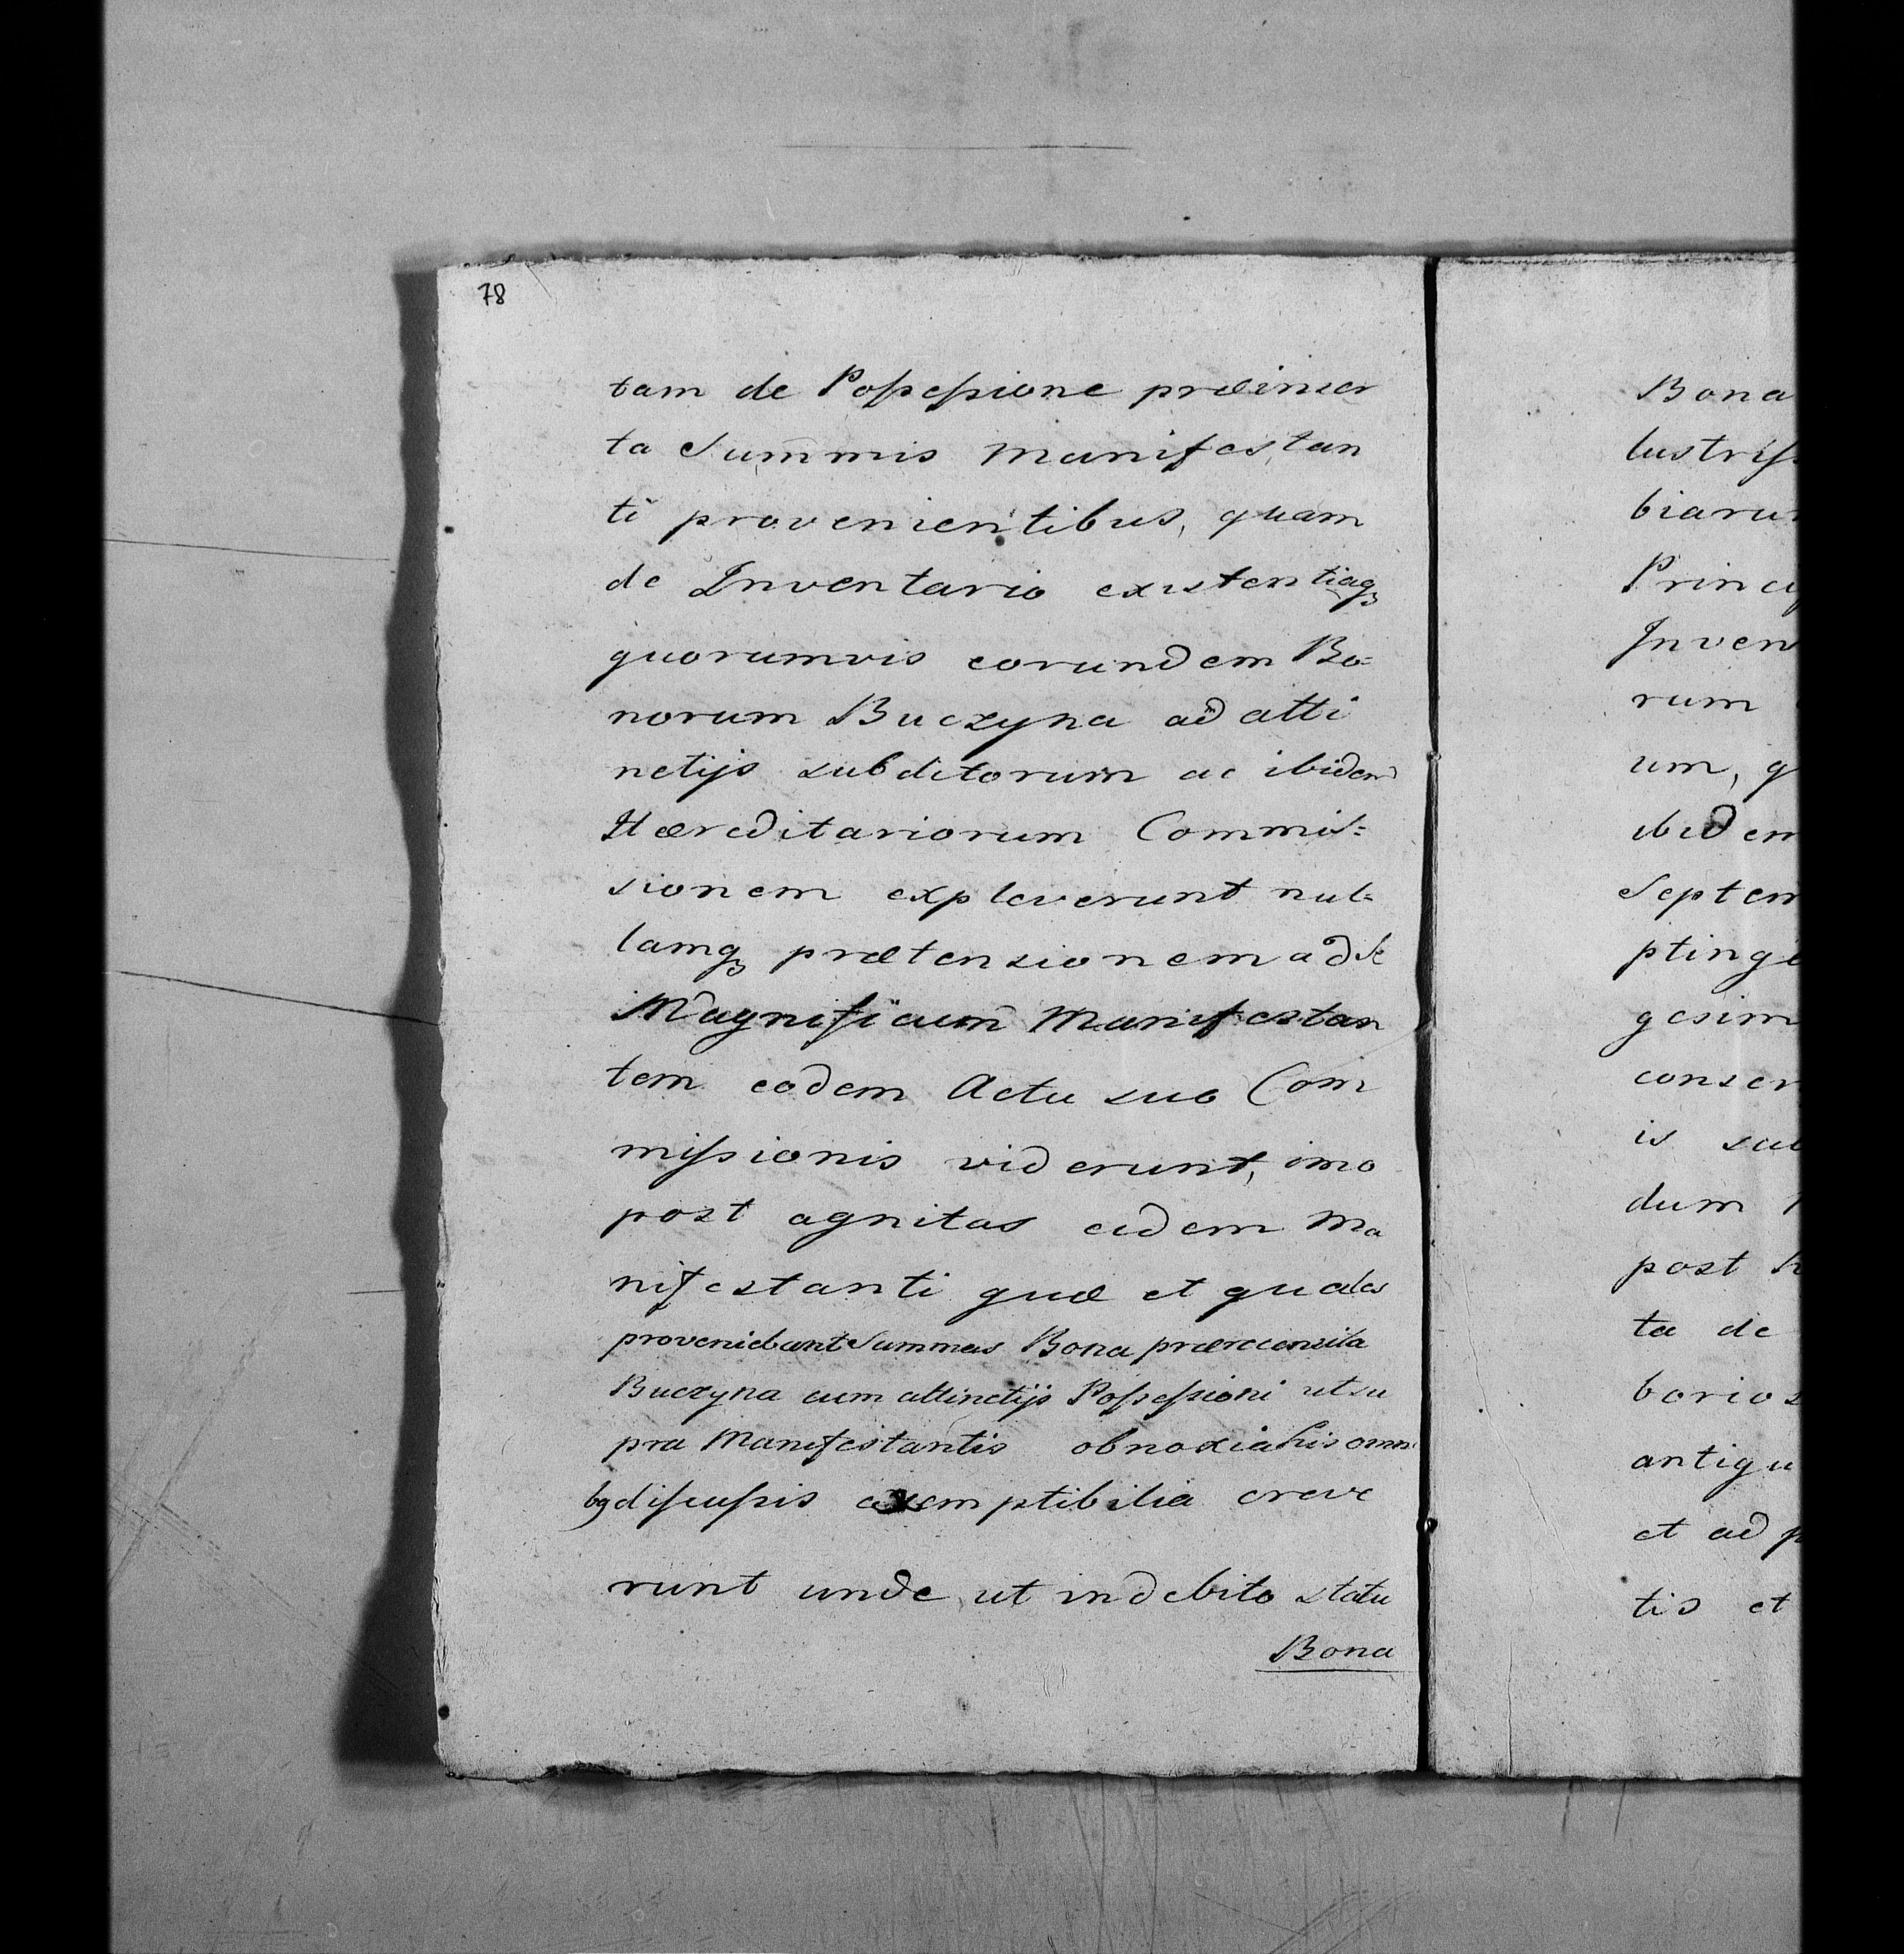 78
tam de Possessione præinser
ta Summis Manifestan
ti provenientibus, quam
de Inventario existentiaqȝ
quorumvis eorundem Bo=
norum Buczyna ad atti
nctijs subditorum ac ibidem
Hæreditariorum Commis=
sionem expleverunt nul=
lamqȝ prætensionem ad se
Magnificum Manifestan
tem eodem Actu suo Com
missionis viderunt, imo
post agnitas eidem Ma
nifestanti quæ et quales
proveniebant Summas Bona præcensita
Buczyna cum attinctijs Possessioni ut su
pra Manifestantis obnoxia his omni
bꝫ discussis exemptibilia creve
runt unde ut in debito statu
Bona
Bona
lustriss
biarum
Princip
Inven
rum
um, q
ibidem
Septem
ptinge
gesim
conser
is sub
dum
post
ta de
borios
antiqu
et ad p
tis et